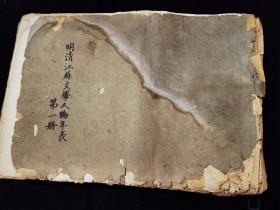 明清江蘇文學人物年表
第一册